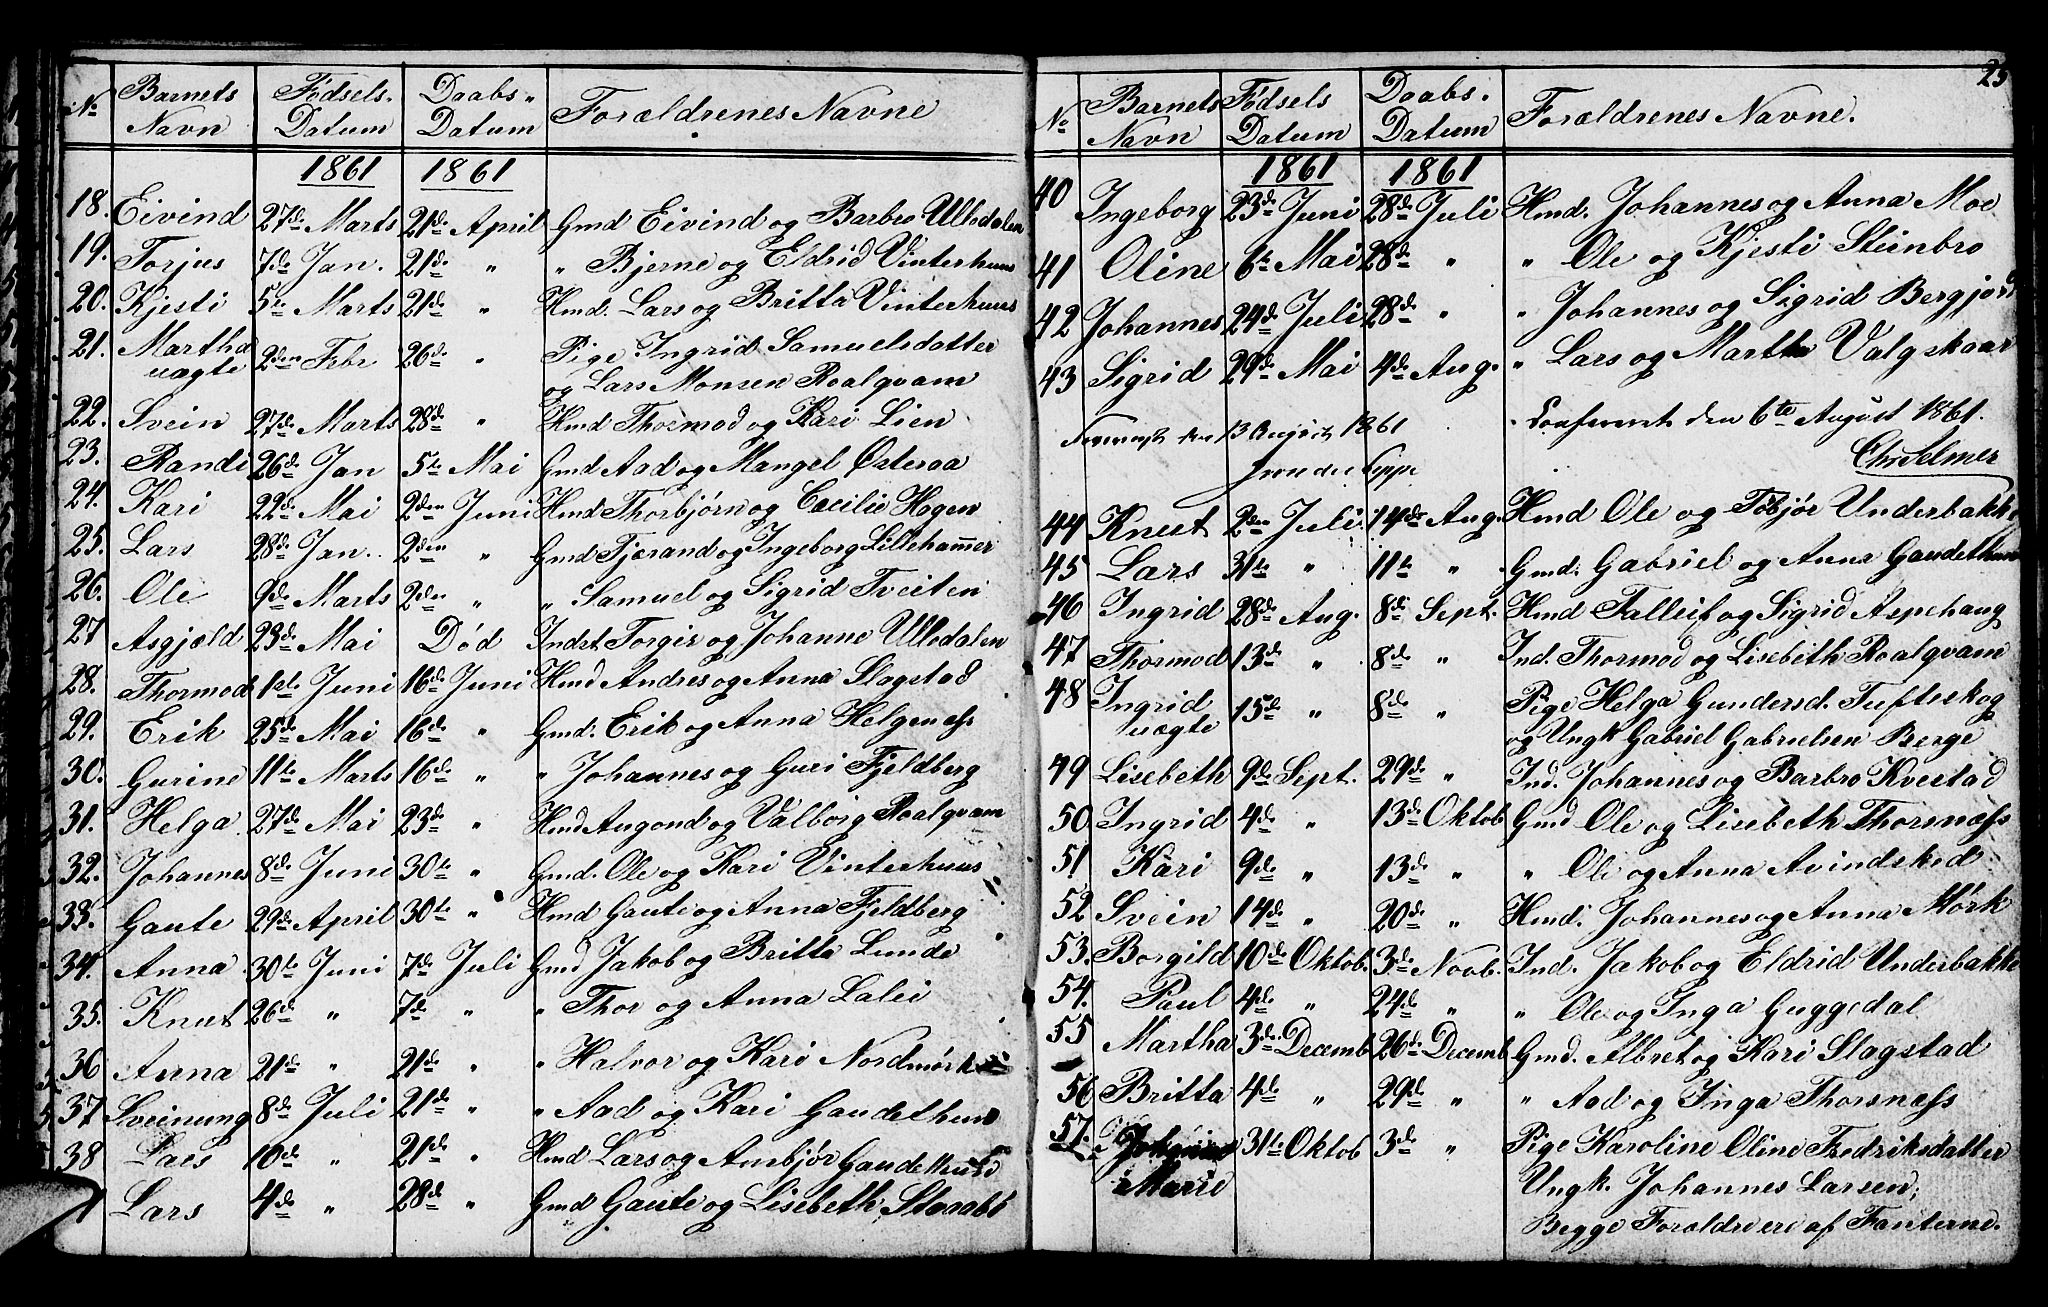 No Barnets Navn Fødsels. Datum Daabs. Datum Forældrenes Navne
1861 1861
18. Eivind 27de Marts 21de April Gmd Eivind og Barbro Ulledalen
19. Torjus 7de Jan. 21de " " Bjerne og Eldrid Vinterhuus
20. Kjesti 5te Marts 21de " Hmd. Lars og Britta Vinterhuus
21. Martha uægte 2den Febr 26de " Pige Ingrid Samuelsdatter
og Lars Monsen Roalqvam
22. Svein 27de Marts 28de " Hmd Thormod og Kari Lien
23. Randi 26de Jan 5te Mai Gmd Aad og Mangel Østeraa
24. Kari 22de Mai 2den Juni Hmd Thorbjørn og Cecilie Hogen
25. Lars 28de Jan. 2den " Gmd Tjærand og Ingeborg Lillehammer
26. Ole 9de Marts 2den " " Samuel og Sigrid Tveiten
27 Asgjæld 23de Mai Død Indst. Torgis og Johanne Ulledalen
28. Thormod 1ste Juni 16de Juni Hmd Andres og Anna Slagstad
29. Erik 25de Mai 16de " Gmd. Erik og Anna Helgenæss
30. Gurine 11te Marts 16de " " Johannes og Guri Fjeldberg
31. Helga 27de Mai 23de " Hmd Augond og Valborg Roalqvam
32. Johannes 8de Juni 30te " Gmd. Ole og Kari Vinterhuus
33. Gaute 29de April 30te " Hmd Gaute og Anna Fjeldberg
34. Anna 30te Juni 7de Juli Gmd Jakob og Britta Lunde
35. Knut 26de " 7de " " Thor og Anna Lalei
36 Anna 21de " 21de " " Halvor og Kari Nordmørk
37 Sveinung 8de Juli 21de " " Aad og Kari Gaudethuus
38 Lars 10de " 21de " Hmd Lars og Ambjør Gaudethuus
Lars 4de " 28de " Gmd Gaute og Lisebeth Storabö
25
No Barnets Navn Fødsels Datum Daabs. Datum Forældrenes Navne.
1861 1861
40 Ingeborg 23de Juni 28de Juli Hmd. Johannes og Anna Moe
41 Oline 6te Mai 28de " " Ole og Kjesti Steinbro
42 Johannes 24de Juli 28de " " Johannes og Sigrid Bergjord
43 Sigrid 29de Mai 4de Aug. " Lars og Martha Valgskaar
Confereret den 6te August 1861.
13 August 1861
Chr Selmer
44 Knut 2den Juli 14de Aug. Hmd Ole og Tobjør Underbakke
45 Lars 31te " 11te " Gmd. Gabriel og Anna Gaudethuus
46 Ingrid 28de Aug. 8de Sept. Hmd Talleif og Sigrid Aspehaug
47 Thormod 13de " 8de " Ind. Thormod og Lisebeth Roalqvam
48 Ingrid uægte 15de " 8de " Pige Helga Gundersd. Tufteskog
og Ungk Gabriel Gabrielsen Berge
49 Lisebeth 9de Sept. 29de " Ind. Johannes og Barbro Kvestad
50 Ingrid 4de " 13de Oktob Gmd Ole og Lisebeth Thorsnæss
51 Kari 9de " 13de " " Ole og Anna Avindsked
52 Svein 14de " 20de " Hmd. Johannes og Anna Mørk
53. Borgild 10de Oktob. 3de Novb. Ind. Jakob og Eldrid Underbakke
54. Paul 4de " 24de " " Ole og Inga Guggedal
55 Martha 3de Decemb 26de Decemb Gmd. Albret og Kari Slagstad
56 Britta 4de " 29de " " Aad og Inga Thorsnæss
57. Marie 31te Oktob 3de " Pige Karoline Oline Fredriksdatter
Ungk. Johannes Larsen;
Begge Forældre ere af Fanterne.